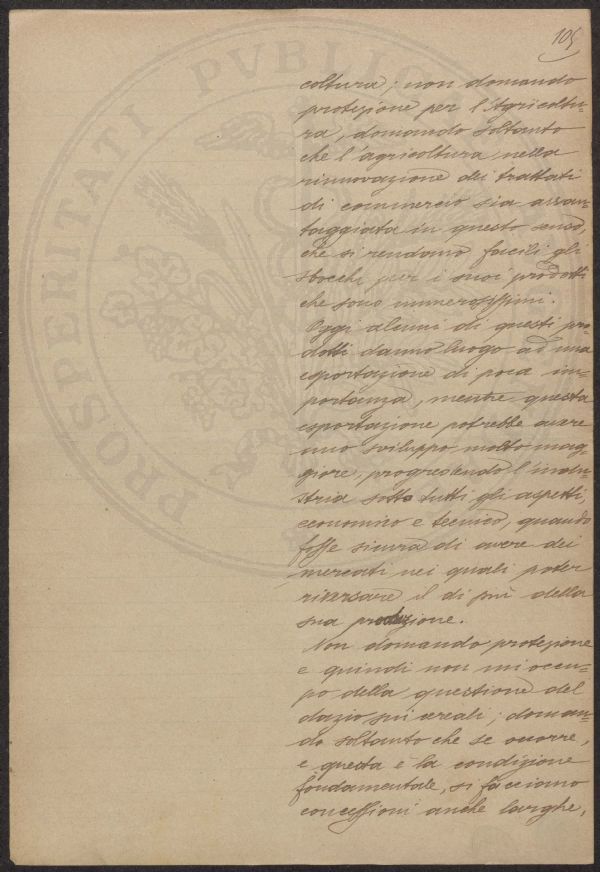 105
PROSPERITATI PVBLIC
coltura; non domando
protezione per l'Agricoltu-
ra, domando soltanto
che l'agricoltura nella
rinnovazione dei trattati
di commercio sia avvan-
taggiata in questo senso,
che si rendano facili gli
sbocchi per i suoi prodotti
che sono numerosissimi.
Oggi alcuni di questi pro-
dotti danno luogo ad una
esportazione di poca im-
portanza, mentre questa
esportazione potrebbe avere
uno sviluppo molto mag-
giore, progredendo l'indu-
stria sotto tutti gli aspetti,
economico e tecnico, quando
fosse sicura di avere dei
mercati nei quali poter
riversare il di più della
sua produzione.
Non domando protezione
e quindi non mi occu-
po della questione del
dazio sui cereali; doman-
do soltanto che se occorre,
e questa è la condizione
fondamentale, si facciano
concessioni anche larghe,